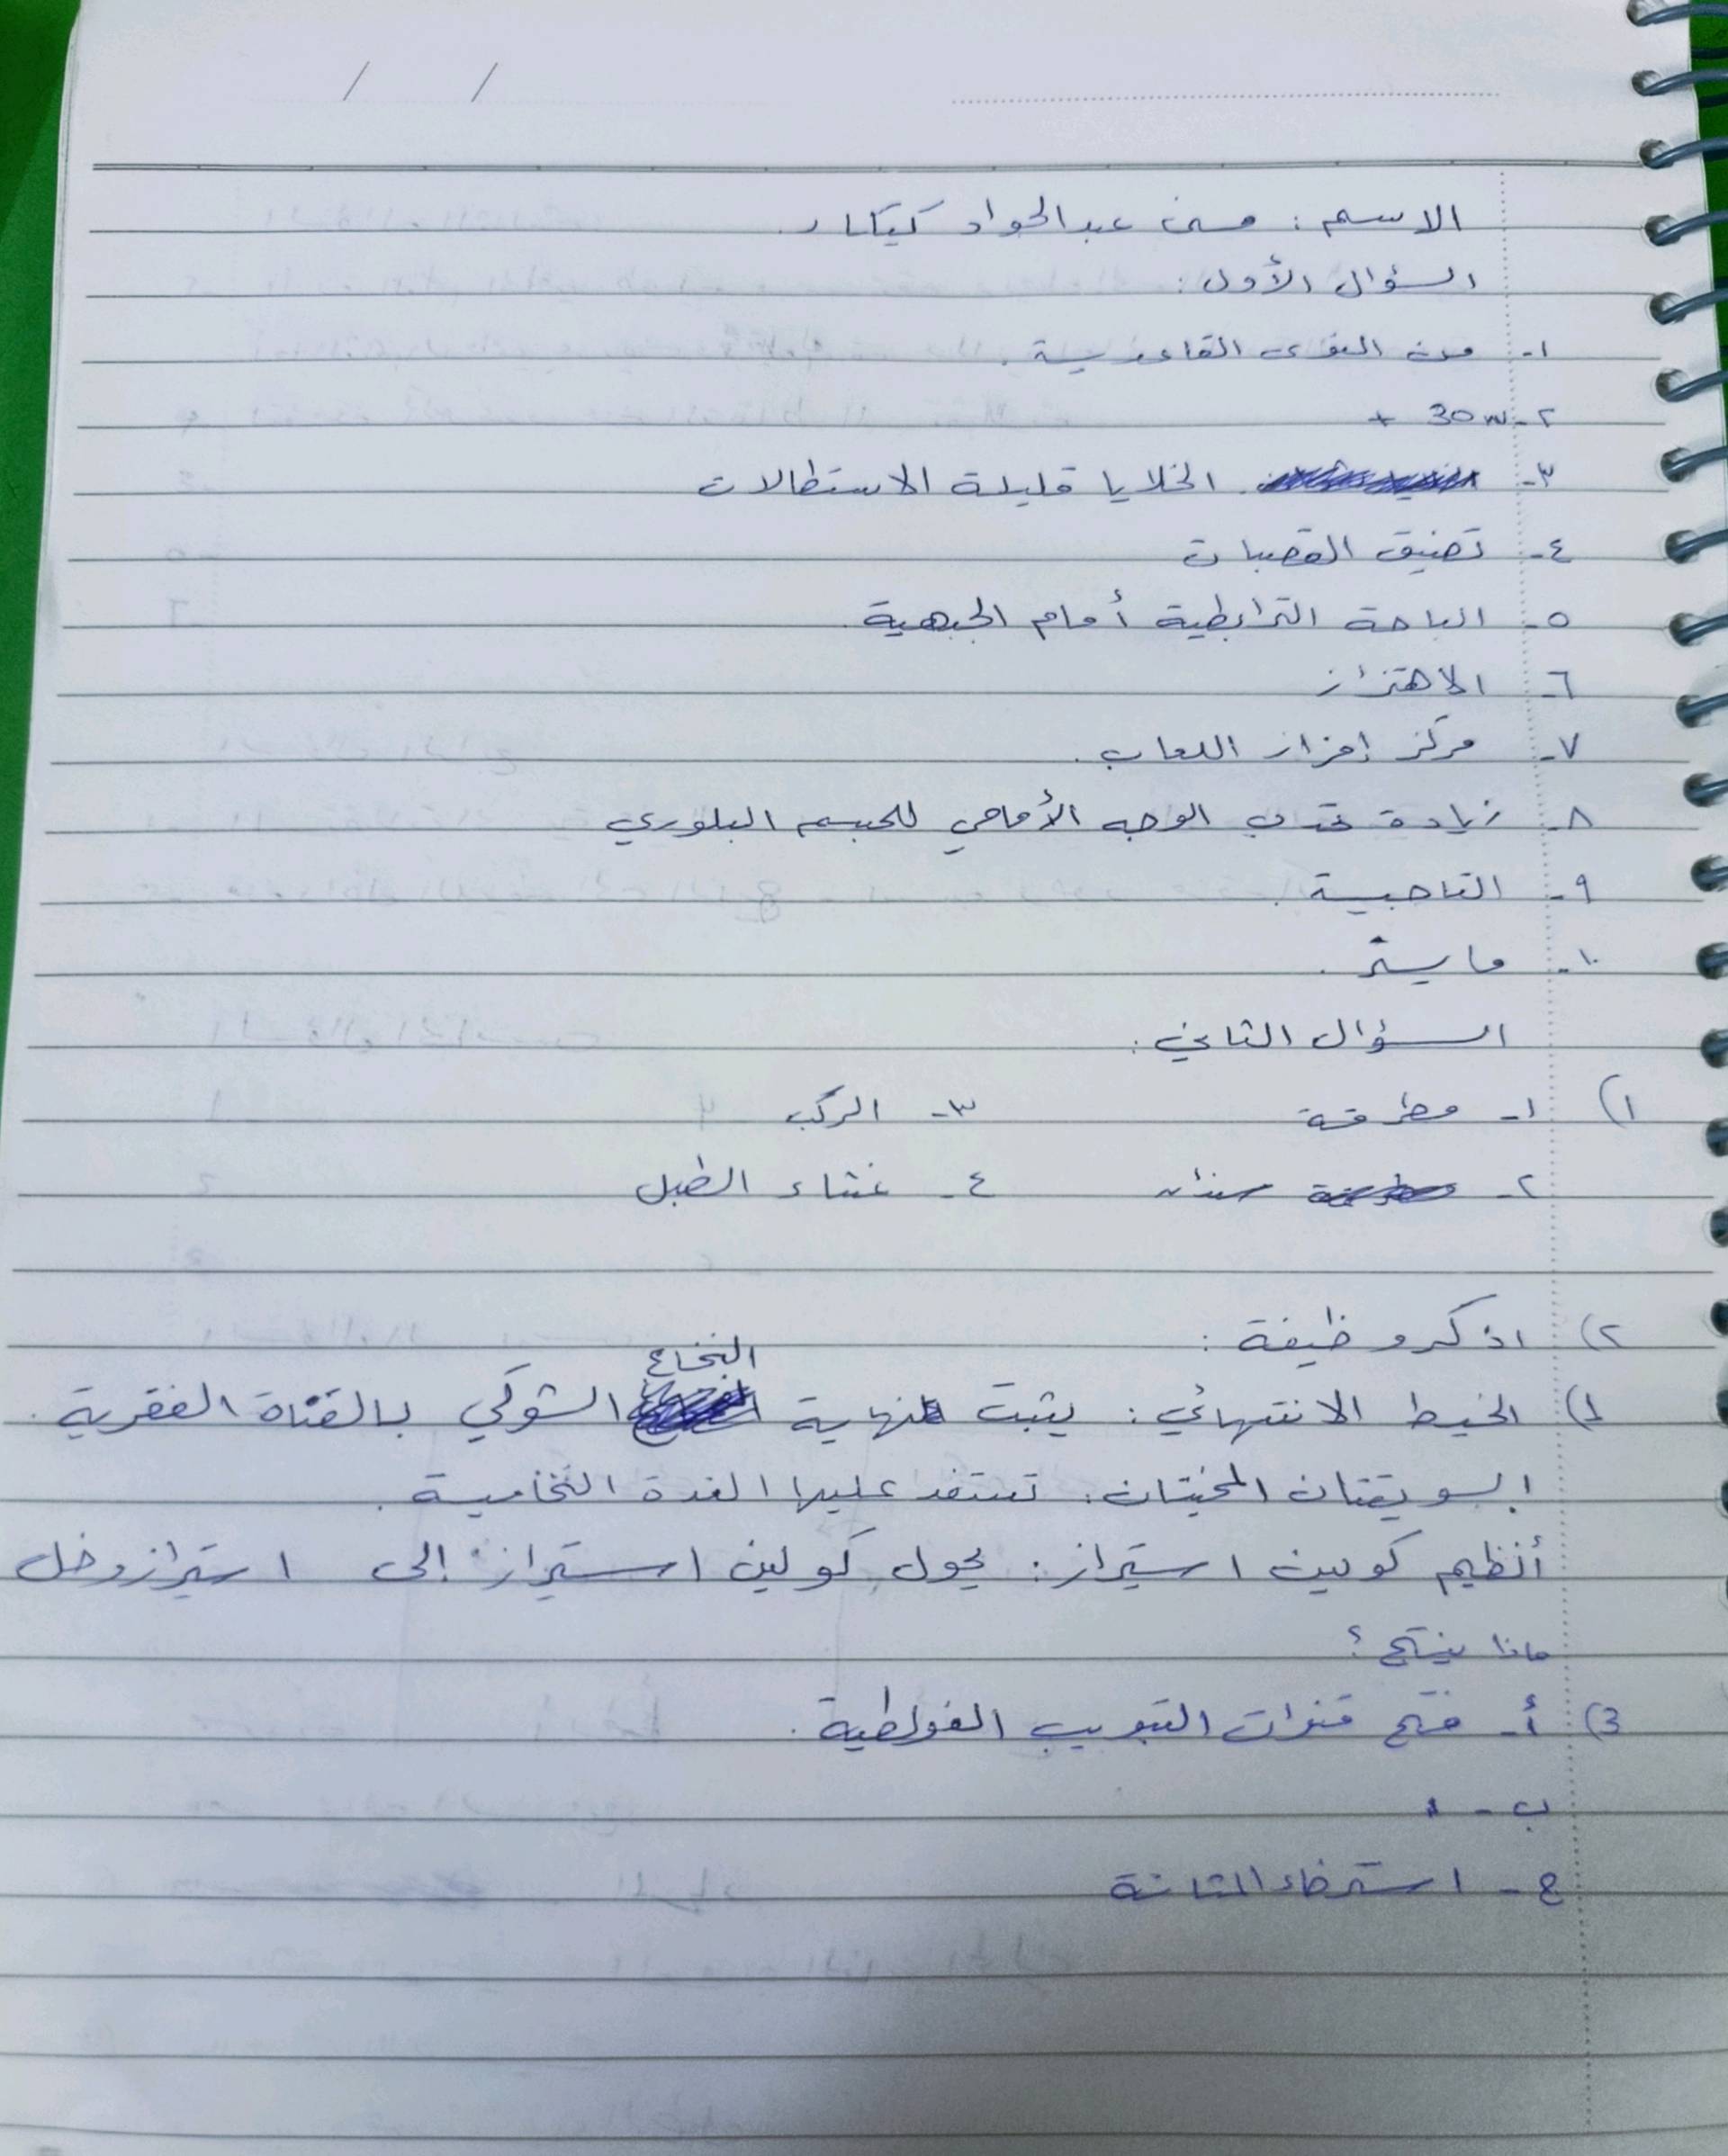 الاسم : حسن عبد الجواد كيكار
السؤال الأول :
١- من النوى القاعدية .
٢- 30 mv +
٣- الخلايا قليلة الاستطالات
٤- تضيق القصبات
٥- الباحة الترابطية أمام الجبهية .
٦- الاهتزاز
٧- مركز إفراز اللعاب .
٨- زيادة تحدب الوجه الأمامي للجسم البلوري
٩- القاحبية .
١٠- مايستر .
السؤال الثاني :
١) ١- مطرقة ٣- الركب
٢- سندان ٤- غشاء الطبل
٢) اذكر وظيفة :
1) الخيط الانتهائي : يثبت نهاية النخاع الشوكي بالقناة الفقرية .
السويقتان المخيتان : تستند عليها الغدة النخامية .
أنظيم كولين استيراز : يحول كولين استيراز إلى استيراز وخل
ماذا ينتج ؟
3) أ- فتح قنوات التبويب الفولطية .
ب -
ج - استرخاء المثانة